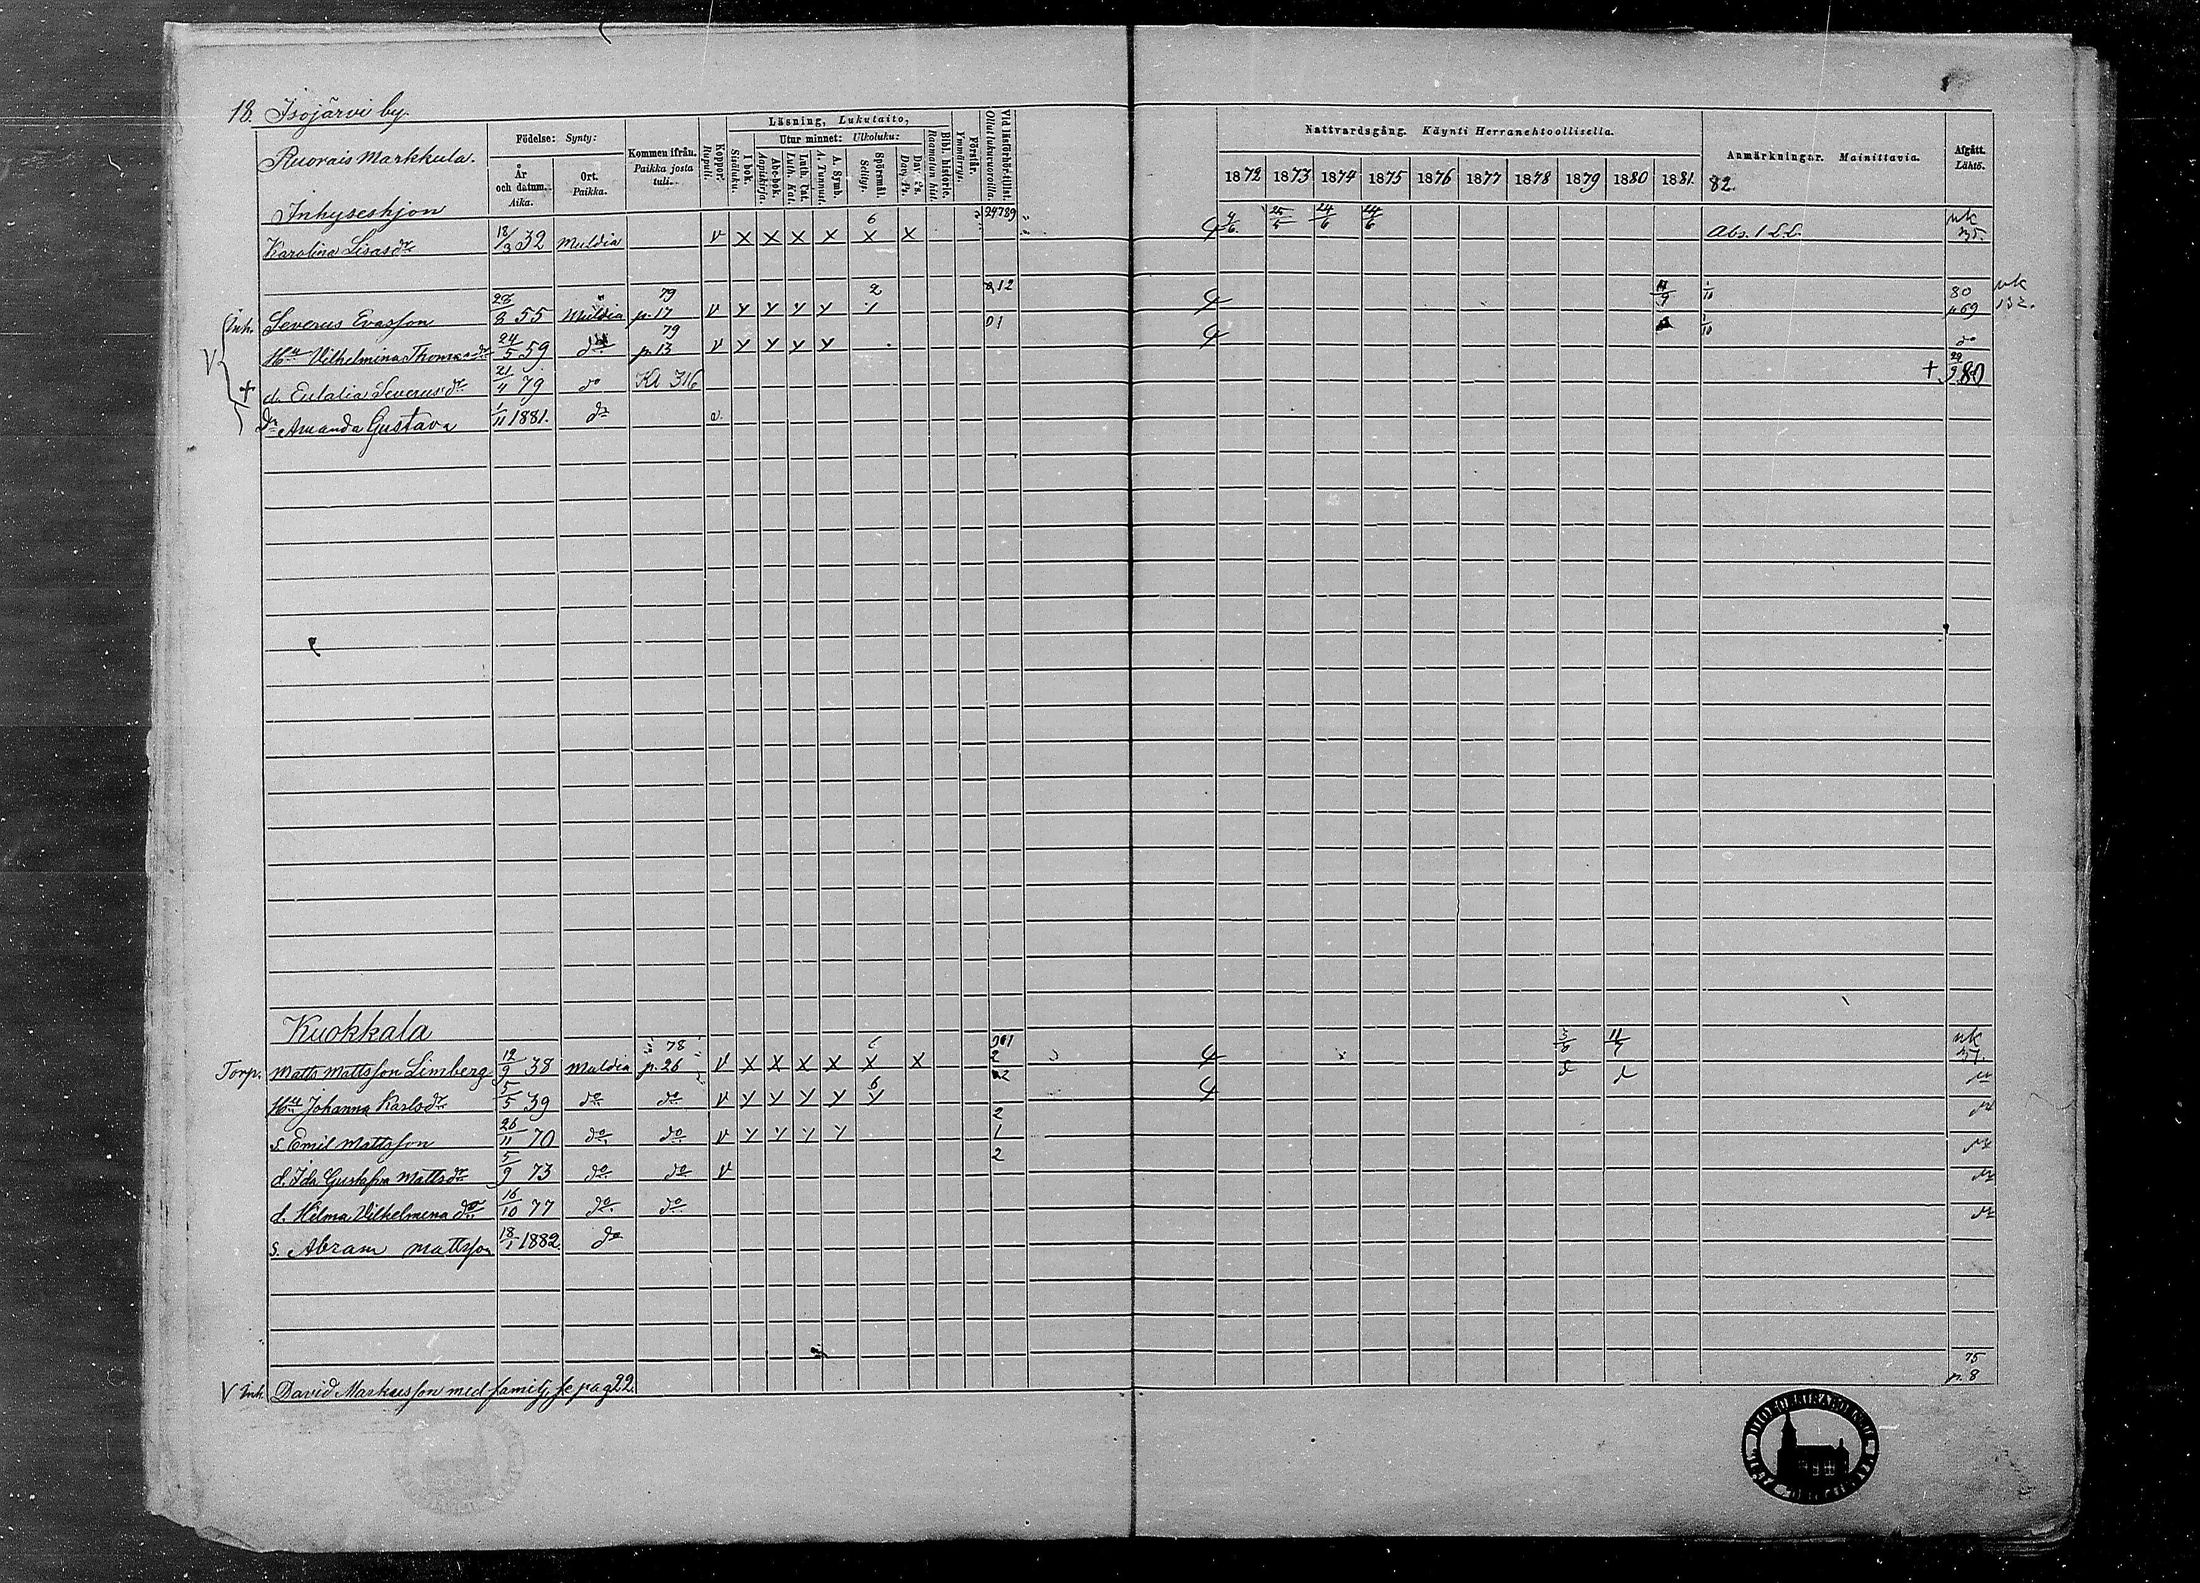 18. Isojärvi by.
Ruorais Markkula.
Födelse: Synty:
År och datum. Aika.
Ort. Paikka.
Kommen ifrån. Paikka josta tuli.
Koppor. Rupuli.
Läsning, Lukutaito,
I bok. Sisäluku.
Utur minnet: Ulkoluku:
Abc-bok. Aapiskirja.
Luth. Cat. Luth. Kat.
A. Symb. A. Tunnust.
Spörsmål. Selitys.
Dav. Ps. Dav. Ps.
Bibl. historie. Raamatun hist.
Förstår. Ymmärrys.
Vid läsförhör tillst. Ollut lukuvuoroilla.
Nattvardsgång. Käynti Herranehtoollisella.
1872 1873 1874 1875 1876 1877 1878 1879 1880 1881
Anmärkningar. Mainittavia.
82.
Afgått. Lähtö.
Inhyseshjon 6 24789
Karolina Lisasdr 18/3 32 Muldia V X X X X X X 4/6 25/5 24/6 24/6 Abs. 1 L.L. uk 35.
Inh. Severus Evasson 28/8 55 Muldia 79 p. 17 V Y Y Y Y 2 12 1/10 80 p 69 uk 132.
Hu Vilhelmina Thomasdr 24/5 59 do 79 p. 13 V Y Y Y Y 01 1/10 do
+ d. Eulalia Severusdr 21/11 79 do Kl 316 + 29/9 80
Dr Amanda Gustava 1/11 1881. do v.
Kuokkala
Torp. Matts Mattsson Limberg 12/9 38 Muldia 78 p. 26 V X X X X X X 2 11/7 uk 37.
Hu Johanna Karlsdr 5/5 39 do do V Y Y Y Y 6 Y 2
s. Emil Mattsson 26/11 70 do do V Y Y Y Y 2 1
d. Ida Gustafva Mattsdr 5/9 73 do do V 2
d. Hilma Vilhelmina do 16/10 77 do do
s. Abram Mattsson 18/1 1882. do
V Inh. David Markusson med familj, se pag 22. 75 p. 8